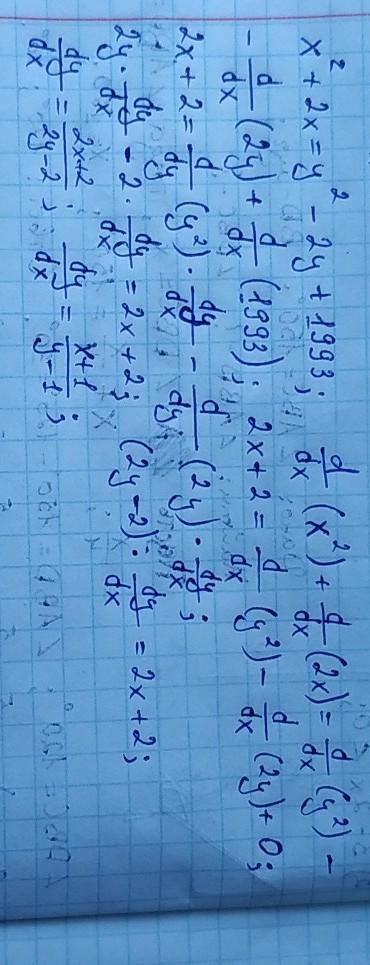 x² + 2x = y² - 2y + 1993; d/dx (x²) + d/dx (2x) = d/dx (y²) -
- d/dx (2y) + d/dx (1993); 2x + 2 = d/dx (y²) - d/dx (2y) + 0;
2x + 2 = d/dy (y²) · dy/dx - d/dy (2y) · dy/dx;
2y · dy/dx - 2 · dy/dx = 2x + 2; (2y - 2) · dy/dx = 2x + 2;
dy/dx = 2x+2/2y-2; dy/dx = x+1/y-1;